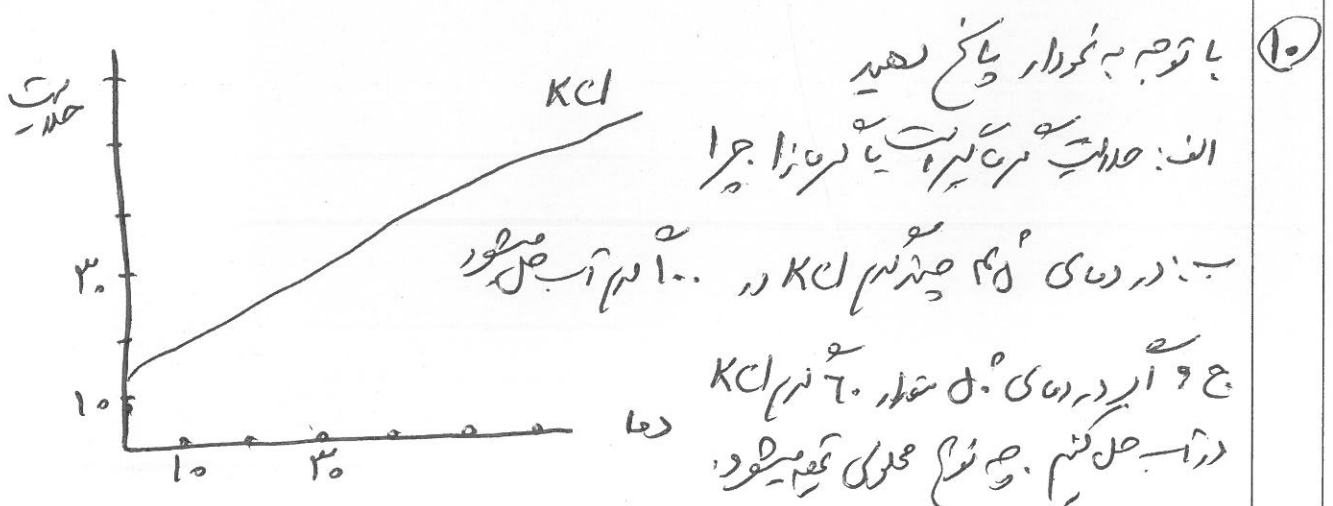 ۱۰
با توجه به نمودار پاسخ دهید
الف: حلالیت گرماگیر است یا گرمازا چرا
ب: در دمای ۴۵° چند گرم KCl در ۱۰۰ گرم آب حل میشود
ج و اگر در دمای ۵۰° مقدار ۶۰ گرم KCl
در آب حل کنیم. چه نوع محلولی تهیه میشود.
حلالیت
KCl
۳۰
۱۰
۱۰
۳۰
دما